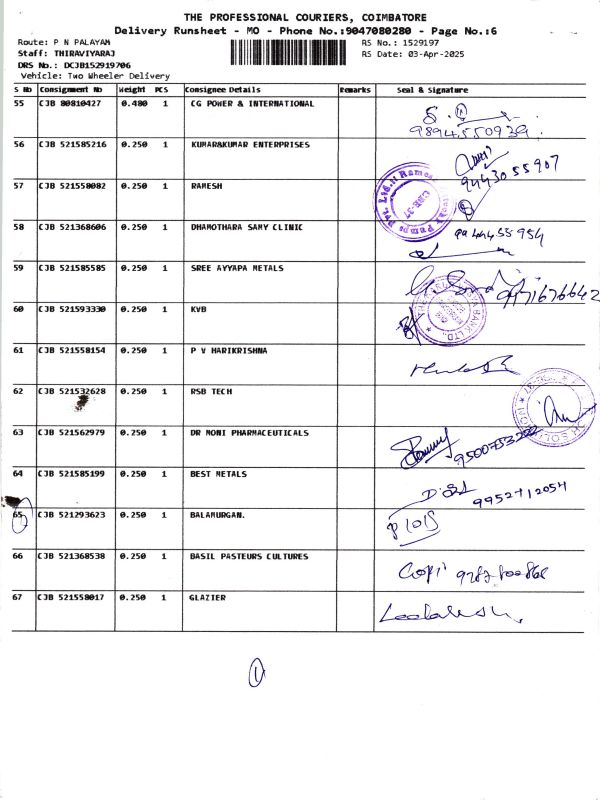 THE PROFESSIONAL COURIERS, COIMBATORE
Delivery Runsheet - MO - Phone No.:9047080280 - Page No.:6
Route: P N PALAYAM RS No.: 1529197
Staff: THIRAVIYARAJ RS Date: 03-Apr-2025
DRS No.: DCJB152919706
Vehicle: Two Wheeler Delivery
S No Consignment No Weight PCS Consignee Details Remarks Seal & Signature
55 CJB 80810427 0.480 1 CG POWER & INTERNATIONAL
9894550939
56 CJB 521585216 0.250 1 KUMAR&KUMAR ENTERPRISES
9443055907
57 CJB 521558082 0.250 1 RAMESH
58 CJB 521368606 0.250 1 DHAMOTHARA SAMY CLINIC
59 CJB 521585585 0.250 1 SREE AYYAPA METALS
60 CJB 521593330 0.250 1 KVB
61 CJB 521558154 0.250 1 P V HARIKRISHNA
62 CJB 521532628 0.250 1 RSB TECH
63 CJB 521562979 0.250 1 DR MONI PHARMACEUTICALS
64 CJB 521585199 0.250 1 BEST METALS
9952712054
65 CJB 521293623 0.250 1 BALAMURGAN.
66 CJB 521368538 0.250 1 BASIL PASTEURS CULTURES
Gopi
67 CJB 521558017 0.250 1 GLAZIER
1